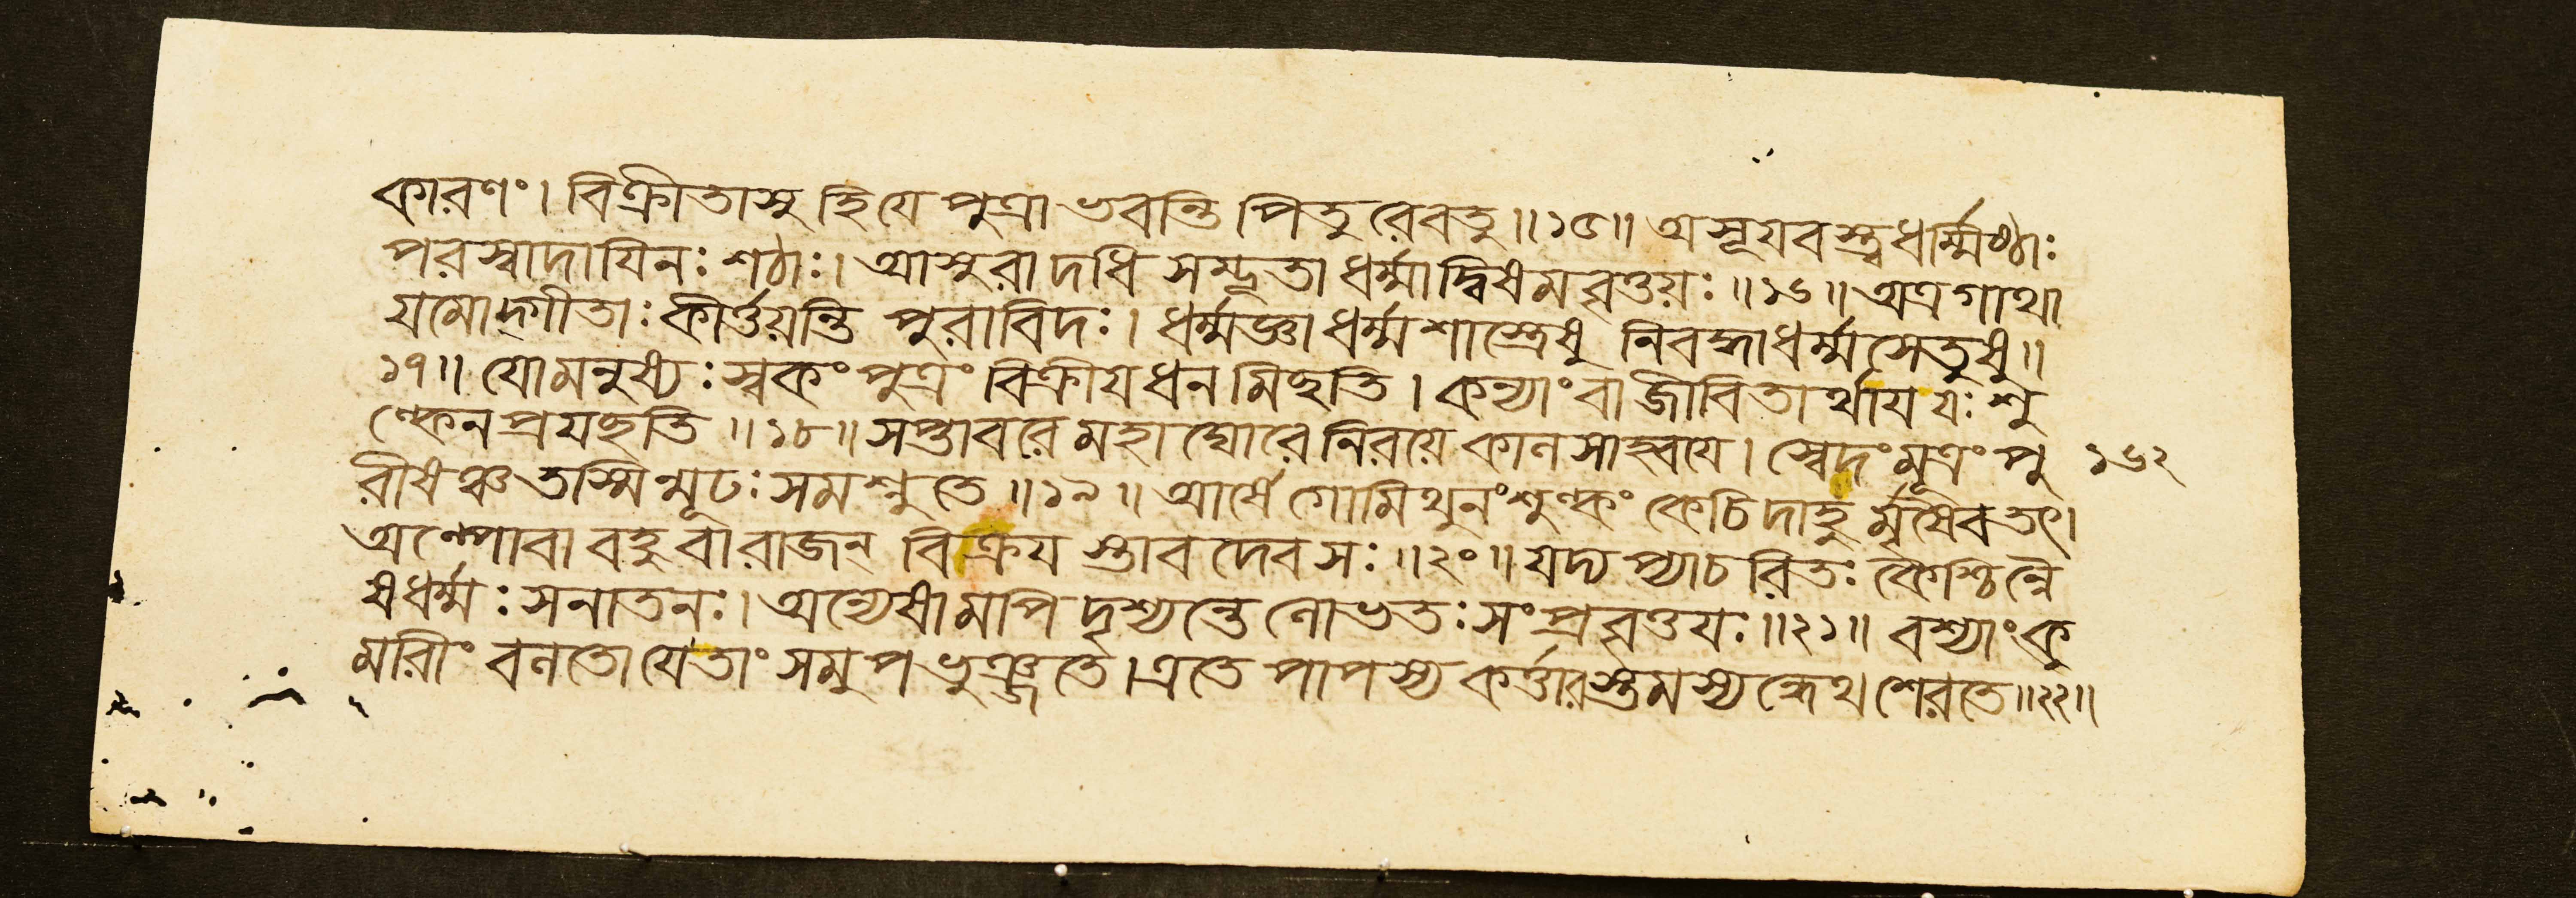 কারণং। বিক্রীতাসু হি যে পুত্রা ভবন্তি পিতু রেবতু॥১৫॥ অসূযবস্ত্বধর্ম্মিষ্ঠাঃ
পরস্বাদাযিনঃ শঠাঃ। আসুরাদধি সম্ভূতা ধর্ম্মাদ্বিষমবৃত্তয়ঃ॥১৬॥ অত্র গাথা
যমোদ্গীতাঃ কীর্ত্তয়ন্তি পুরাবিদঃ। ধর্ম্মজ্ঞা ধর্ম্মশাস্ত্রেষু নিবদ্ধা ধর্ম্মসেতুষু॥
১৭॥ যো মনুষ্যঃ স্বকং পুত্রং বিক্রীয ধনমিচ্ছতি। কন্যাং বা জীবিতার্থায যঃ শু
ল্কেন প্রযচ্ছতি॥১৮॥ সপ্তাবরে মহাঘোরে নিরয়ে কালসাহ্বযে। স্বেদং মূত্রং পু ১৬২
রীষঞ্চ তস্মিন্মূঢঃ সমশ্নুতে॥১৯॥ আর্ষে গোমিথুনং শুল্কং কেচিদাহু র্মৃষৈব তৎ।
অল্পো বা বহু র্বা রাজন্ বিক্রয স্তাবদেব সঃ॥২০॥ যদ্য প্যাচরিতঃ কৈশ্চিন্নৈ
ষ ধর্ম্মঃ সনাতনঃ। অন্যেষামপি দৃশ্যন্তে লোভতঃ সংপ্রবৃত্তযঃ॥২১॥ বশ্যাং কু
মারীং বলতো যে তাং সমুপভুঞ্জতে। এতে পাপস্য কর্ত্তারস্তমস্যন্ধেথ শেরতে॥২২॥